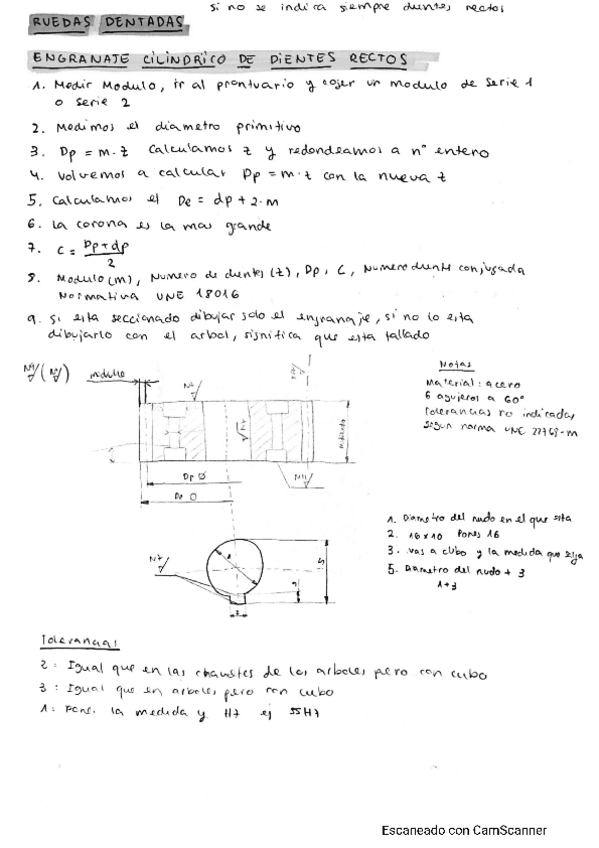 si no se indica siempre dientes rectos
RUEDAS DENTADAS
ENGRANAJE CILINDRICO DE DIENTES RECTOS
1. Medir Modulo, ir al prontuario y coger un modulo de Serie 1
o serie 2
2. Medimos el diametro primitivo
3. Dp = m·z Calculamos z y redondeamos a nº entero
4. Volvemos a calcular Dp = m·z con la nueva z
5. Calculamos el De = dp + 2·m
6. La corona es la mas grande
7. C = Dp + dp
2
8. Modulo (m), Numero de dientes (z), Dp, C, Numero dients conjugada
Normativa UNE 18016
9. Si esta seccionado dibujar solo el engranaje, si no lo esta
dibujarlo con el arbol, significa que esta tallado
modulo
Notas
Material: acero
6 agujeros a 60°
Tolerancias no indicadas
segun norma UNE 22768-m
Dp Ø
De Ø
1. Diametro del nudo en el que esta
2. 16x10 Pones 16
3. vas a cubo y la medida que sea
5. Diametro del nudo + 3
1+3
N7
1
5
3
2
Tolerancias
2: Igual que en las chavetes de los arboles pero con cubo
3: Igual que en arboles pero con cubo
1: Pons. la medida y H7 ej 55H7
Escaneado con CamScanner